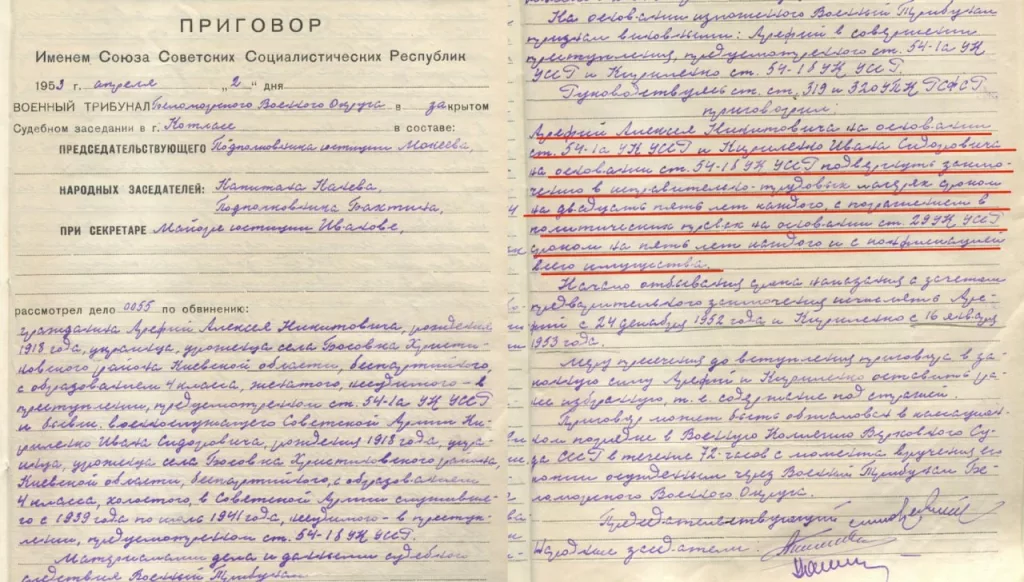 ПРИГОВОР
Именем Союза Советских Социалистических Республик
1953 г. апреля „2“ дня
ВОЕННЫЙ ТРИБУНАЛ Беломорского Военного Округа в закрытом
Судебном заседании в г. Котласе в составе:
ПРЕДСЕДАТЕЛЬСТВУЮЩЕГО Подполковника юстиции Мокеева,
НАРОДНЫХ ЗАСЕДАТЕЛЕЙ: Капитана
Подполковника Бахтина,
ПРИ СЕКРЕТАРЕ Майоре юстиции Ивахове,
рассмотрел дело 0055 по обвинению:
гражданина Арефий Алексея Никитовича, рождения
1918 года, украинца, уроженца села Босовка Христи-
новского района Киевской области, беспартийного,
с образованием 4 класса, женатого, несудимого - в
преступлении, предусмотренном ст. 54-1а УК УССР
и бывш. военнослужащего Советской Армии Ки-
риленко Ивана Сидоровича, рождения 1918 года, укра-
инца, уроженца села Босовка Христиновского района,
Киевской области, беспартийного, с образованием
4 класса, холостого, в Советской Армии служивше-
го с 1939 года по июль 1941 года, несудимого - в преступ-
лении, предусмотренном ст. 54-1б УК УССР.
Материалами дела и данными судебного
следствия Военный Трибунал
На основании изложенного Военный Трибунал
признал виновными: Арефий в совершении
преступления, предусмотренного ст. 54-1а УК
УССР и Кириленко ст. 54-1б УК УССР.
Руководствуясь ст. ст. 319 и 320 УПК РСФСР
приговорил:
Арефий Алексея Никитовича на основании
ст. 54-1а УК УССР и Кириленко Ивана Сидоровича
на основании ст. 54-1б УК УССР подвергнуть заклю-
чению в исправительно-трудовых лагерях сроком
на двадцать пять лет каждого, с поражением в
политических правах на основании ст. 29 УК УССР
сроком на пять лет каждого и с конфискацией
всего имущества.
Начало отбывания срока наказания с зачетом
предварительного заключения исчислять Аре-
фий с 24 декабря 1952 года и Кириленко с 16 января
1953 года.
Меру пресечения до вступления приговора в за-
конную силу Арефий и Кириленко оставить ра-
нее избранную, т. е. содержание под стражей.
Приговор может быть обжалован в кассацион-
ном порядке в Военную Коллегию Верховного Су-
да СССР в течение 72-часов с момента вручения его
копии осужденным через Военный Трибунал Бе-
ломорского Военного Округа.
Председательствующий
Народные заседатели: